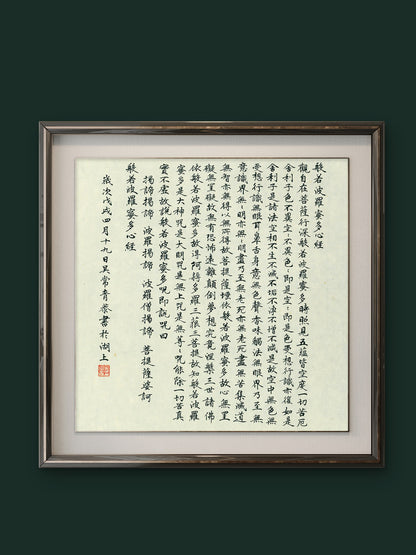 般若波羅蜜多心經
觀自在菩薩行深般若波羅蜜多時照見五蘊皆空度一切苦厄
舍利子色不異空々不異色々即是空々即是色受想行識亦復如是
舍利子是諸法空相不生不滅不垢不淨不增不減是故空中無色無
受想行識無眼耳鼻舌身意無色聲香味觸法無眼界乃至無
意識界無々明亦無々明盡乃至無老死亦無老死盡無苦集滅道
無智亦無得以無所得故菩提薩埵依般若波羅蜜多故心無罣
礙無罣礙故無有恐怖遠離顛倒夢想究竟涅槃三世諸佛
依般若波羅蜜多故得阿耨多羅三藐三菩提故知般若波羅
蜜多是大神呪是大明呪是無上呪是無等々呪能除一切苦真
實不虛故說般若波羅蜜多呪即說呪曰
揭諦揭諦 波羅揭諦 波羅僧揭諦 菩提薩婆訶
般若波羅蜜多心經
歲次戊戌四月十九日吳常青恭書於湖上